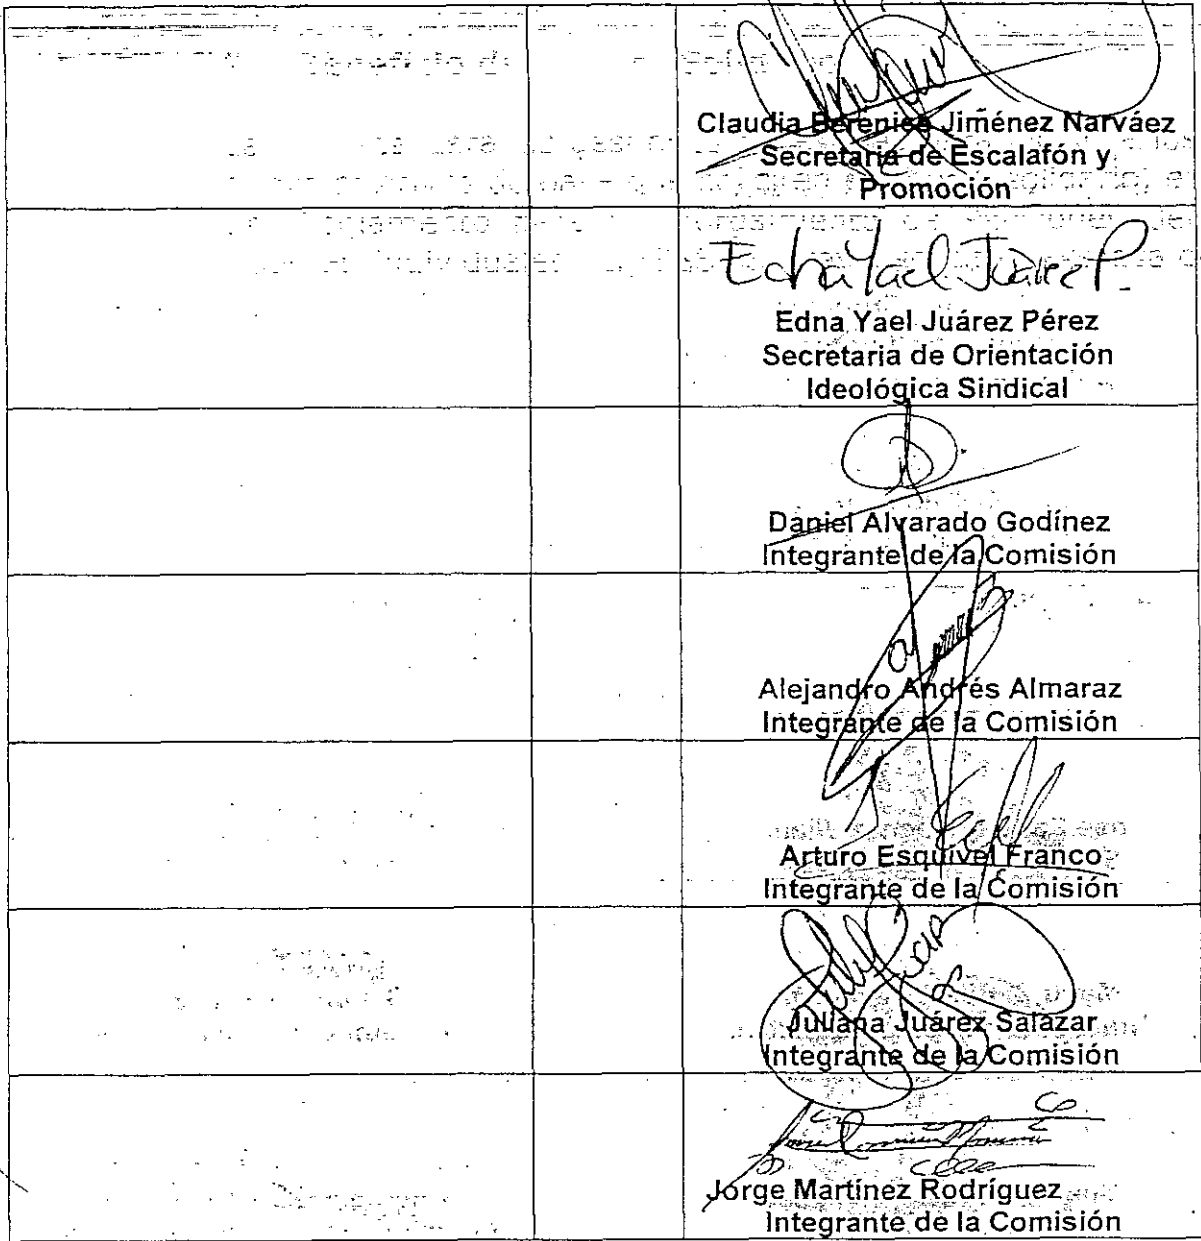 Claudia Berenice Jiménez Narváez
Secretaria de Escalafón y
Promoción
Edna Yael Juárez P.
Edna Yael Juárez Pérez
Secretaria de Orientación
Ideológica Sindical
Daniel Alvarado Godínez
Integrante de la Comisión
Alejandro Andrés Almaraz
Integrante de la Comisión
Arturo Esquivel Franco
Integrante de la Comisión
Juliana Juárez Salazar
Integrante de la Comisión
Jorge Martínez Rodríguez
Integrante de la Comisión